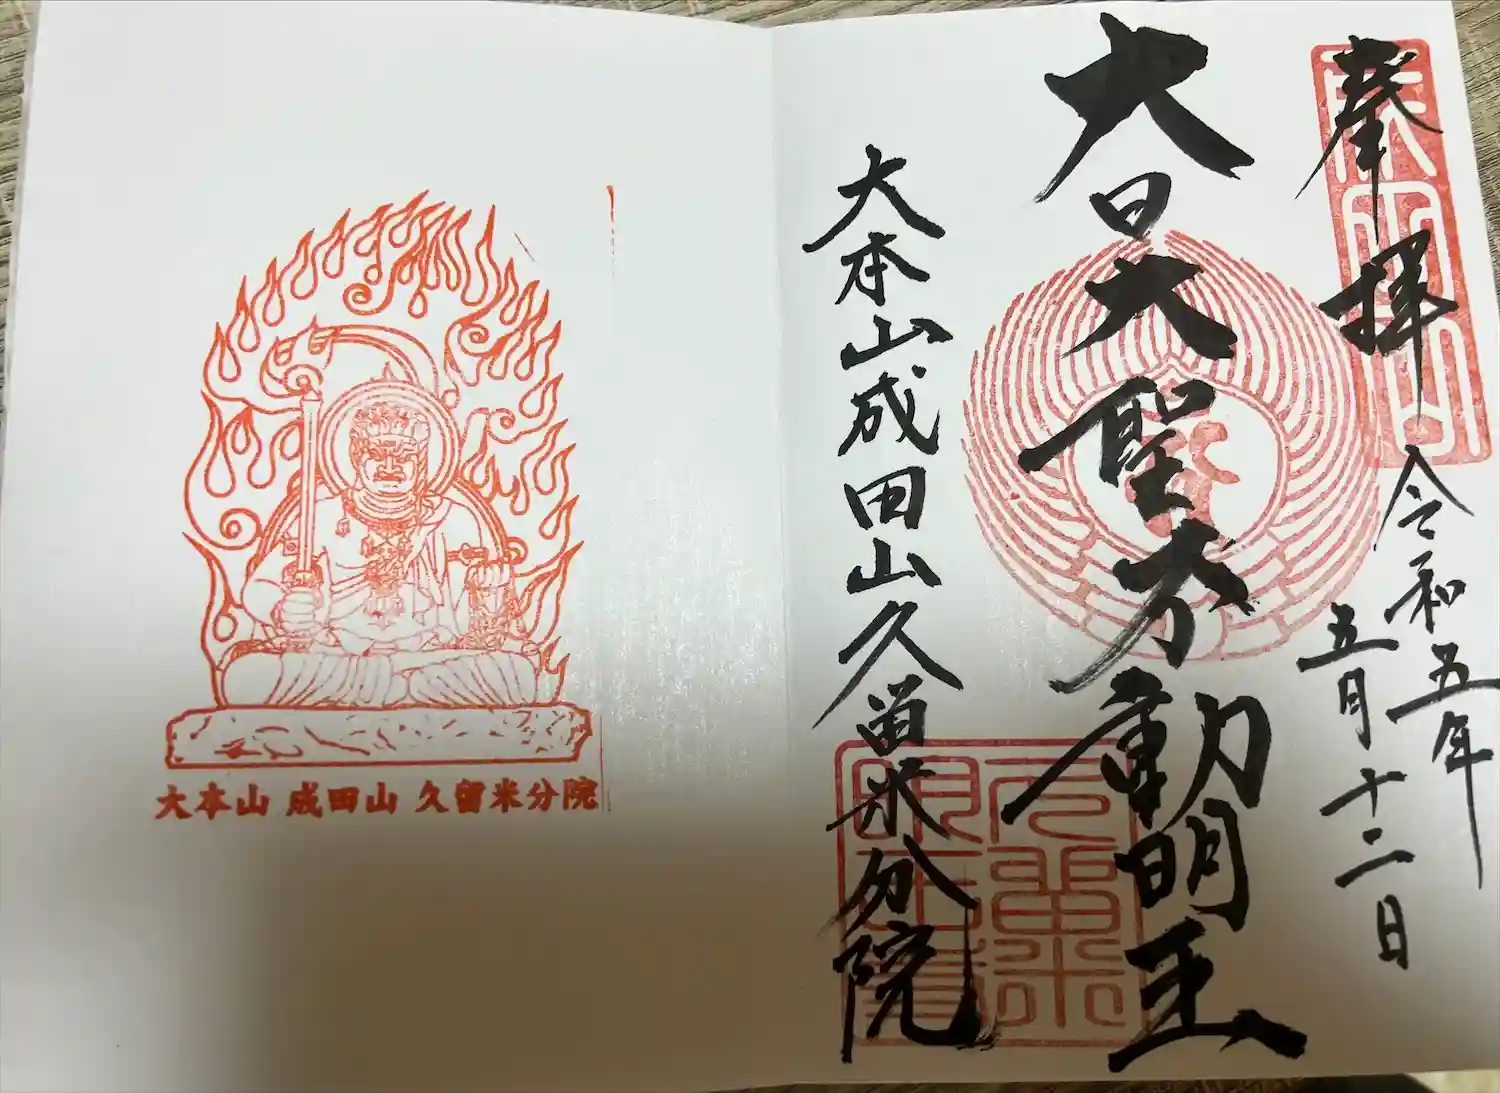 奉拝
令和五年
五月十二日
大日大聖不動明王
大本山成田山久留米分院
大本山 成田山 久留米分院